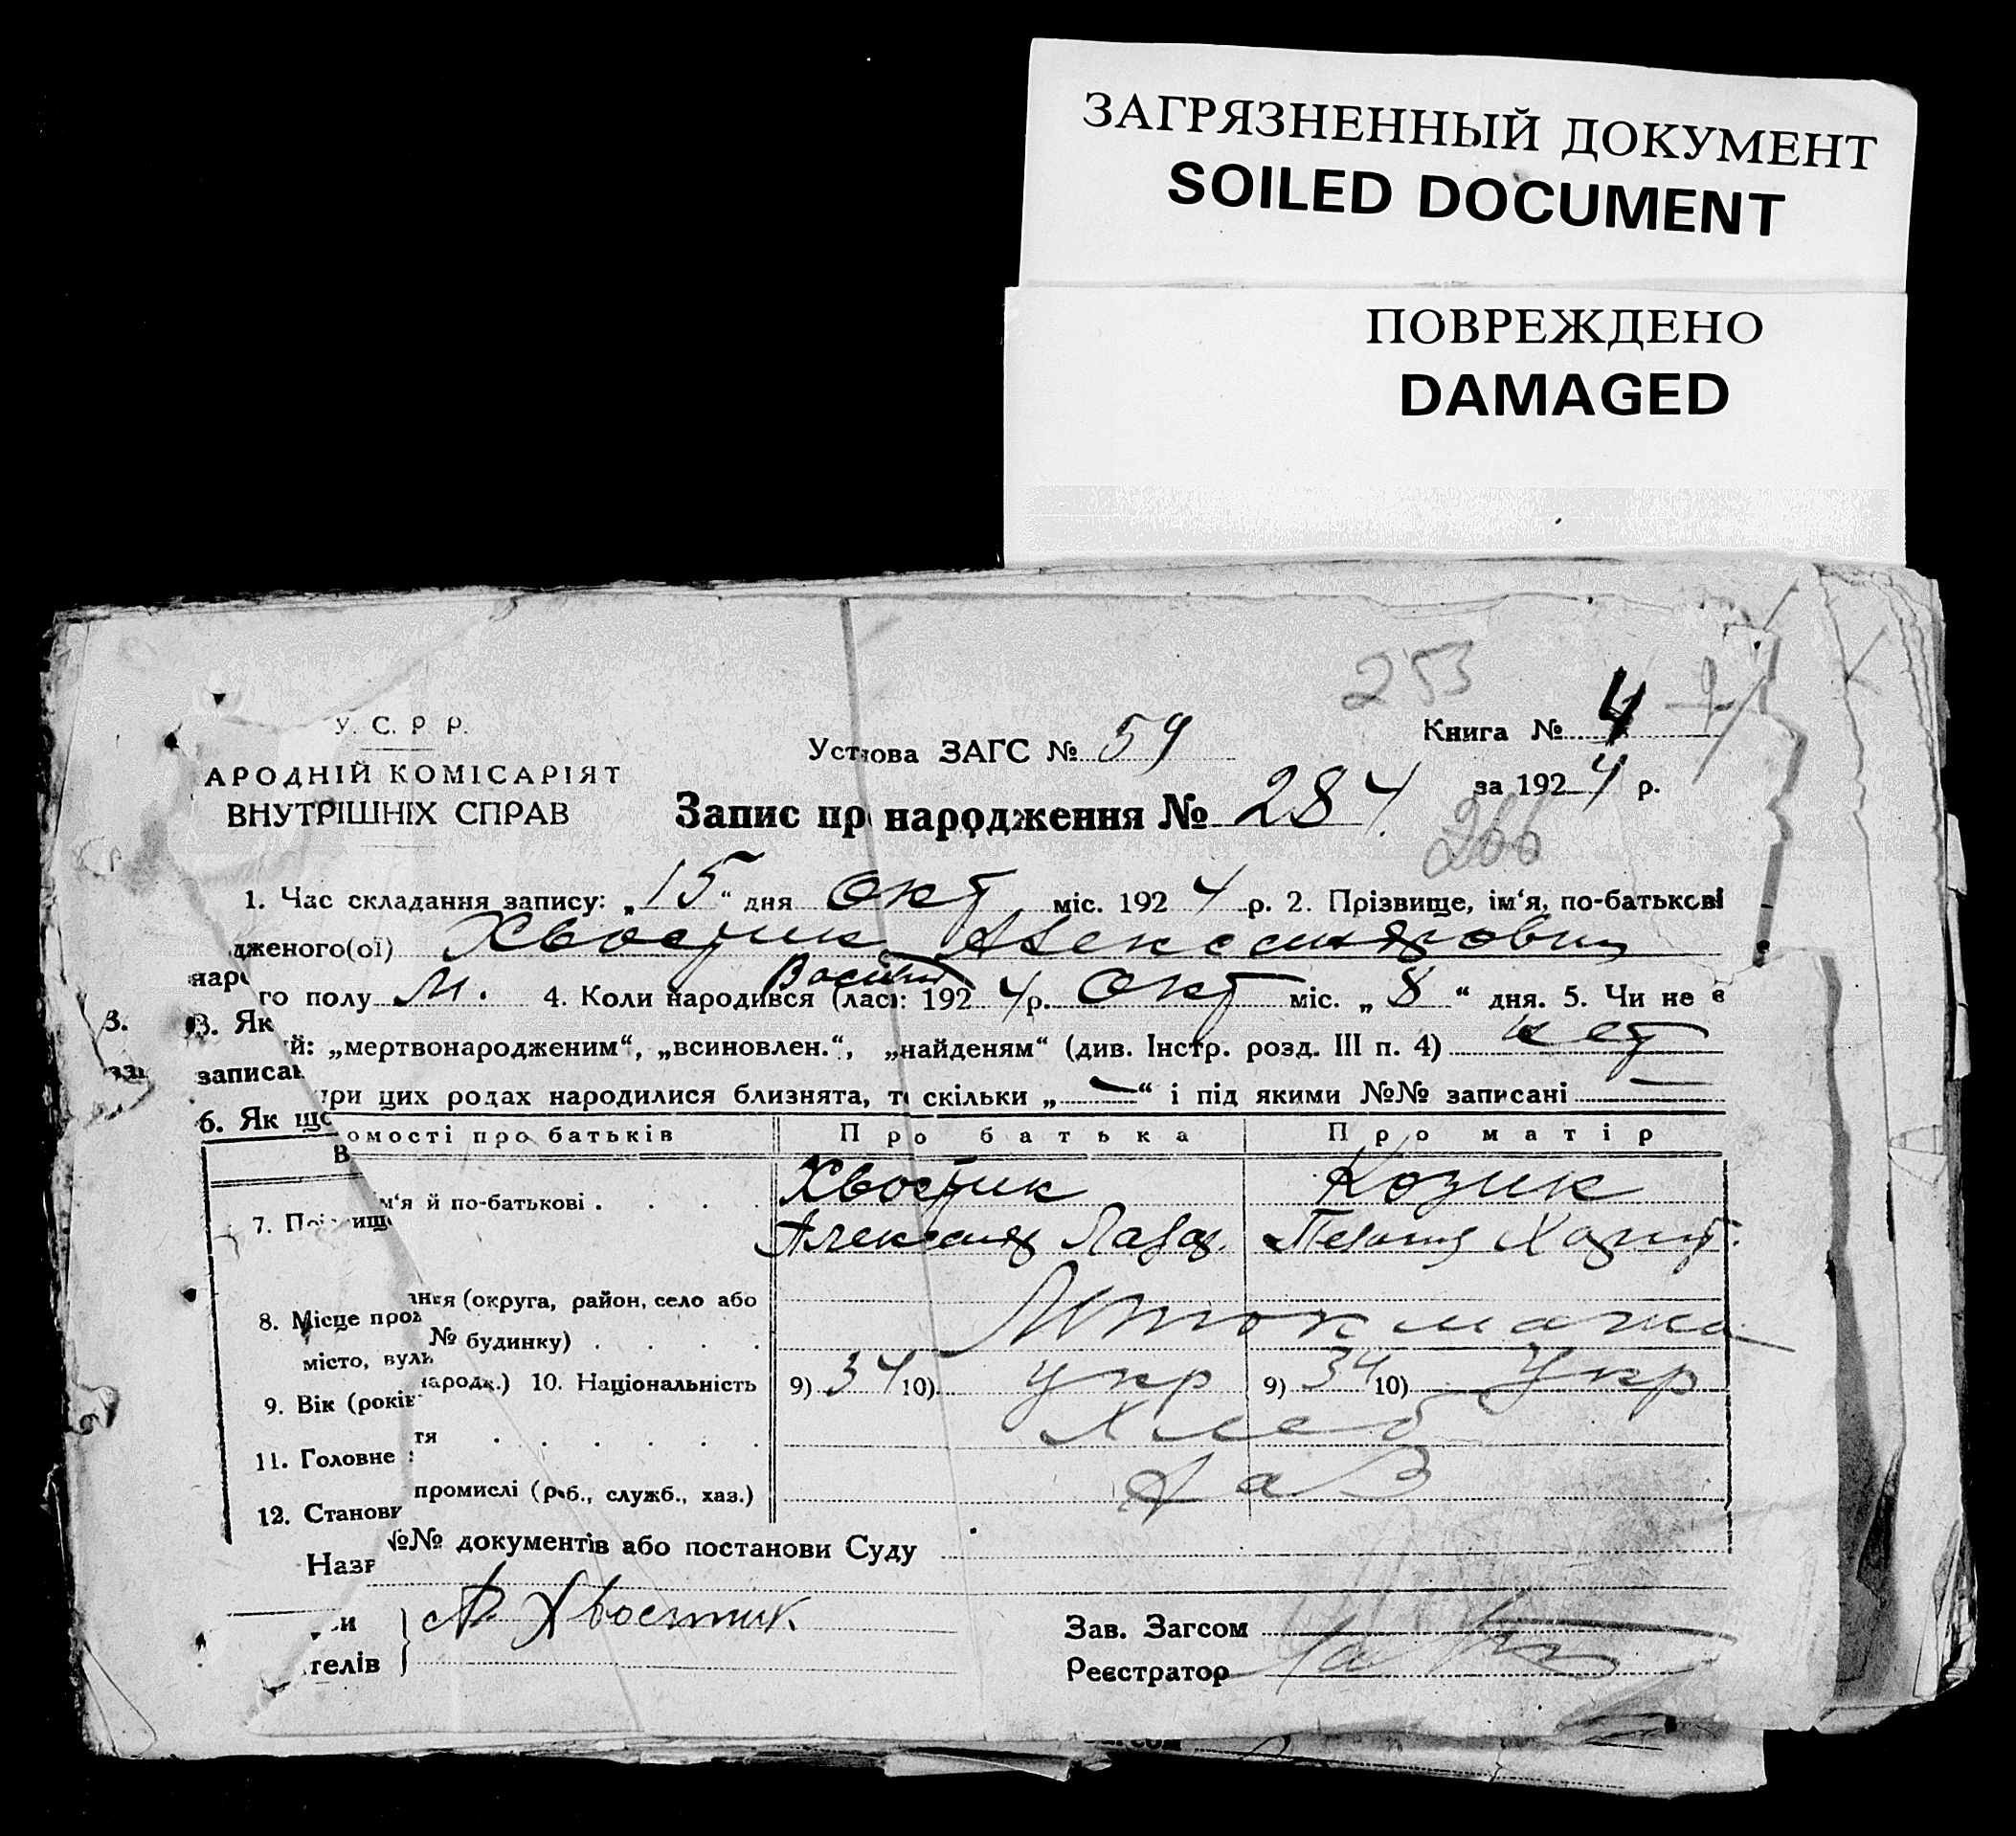 ЗАГРЯЗНЕННЫЙ ДОКУМЕНТ
SOILED DOCUMENT
ПОВРЕЖДЕНО
DAMAGED
253
У. С. Р Р.
АРОДНІЙ КОМІСАРІЯТ
ВНУТРІШНІХ СПРАВ
Установа ЗАГС № 59
Книга № 4
за 1924 р.
Запис про народження № 284
266
1. Час складання запису: „15“ дня окт міс. 1924 р. 2. Прізвище, ім‘я, по-батькові
нар дженого(ої) Хвостик Александрович
Васили
3. Як го полу м. 4. Коли народився (лась): 1924 р. окт міс. „8“ дня. 5. Чи не є
записан ий: „мертвонародженим“, „всиновлен.“, „найденям“ (див. Інстр. розд. III п. 4) нет
6. Як що при цих родах народилися близнята, то скільки „—“ і під якими №№ записані —
В омості про батьків Про батька Про матір
7. Прізвище ім‘я й по-батькові Хвостик Козик
Александ Лазар.
8. Місце прож ання (округа, район, село або
місто, вули № будинку)
9. Вік (років народж.) 10. Національність 9) 34 10) укр 9) 34 10) Укр
11. Головне тя Хлеб
12. Станови промислі (роб., служб., хаз.)
Назв №№ документів або постанови Суду
А Хвостик
телів
Зав. Загсом
Реєстратор